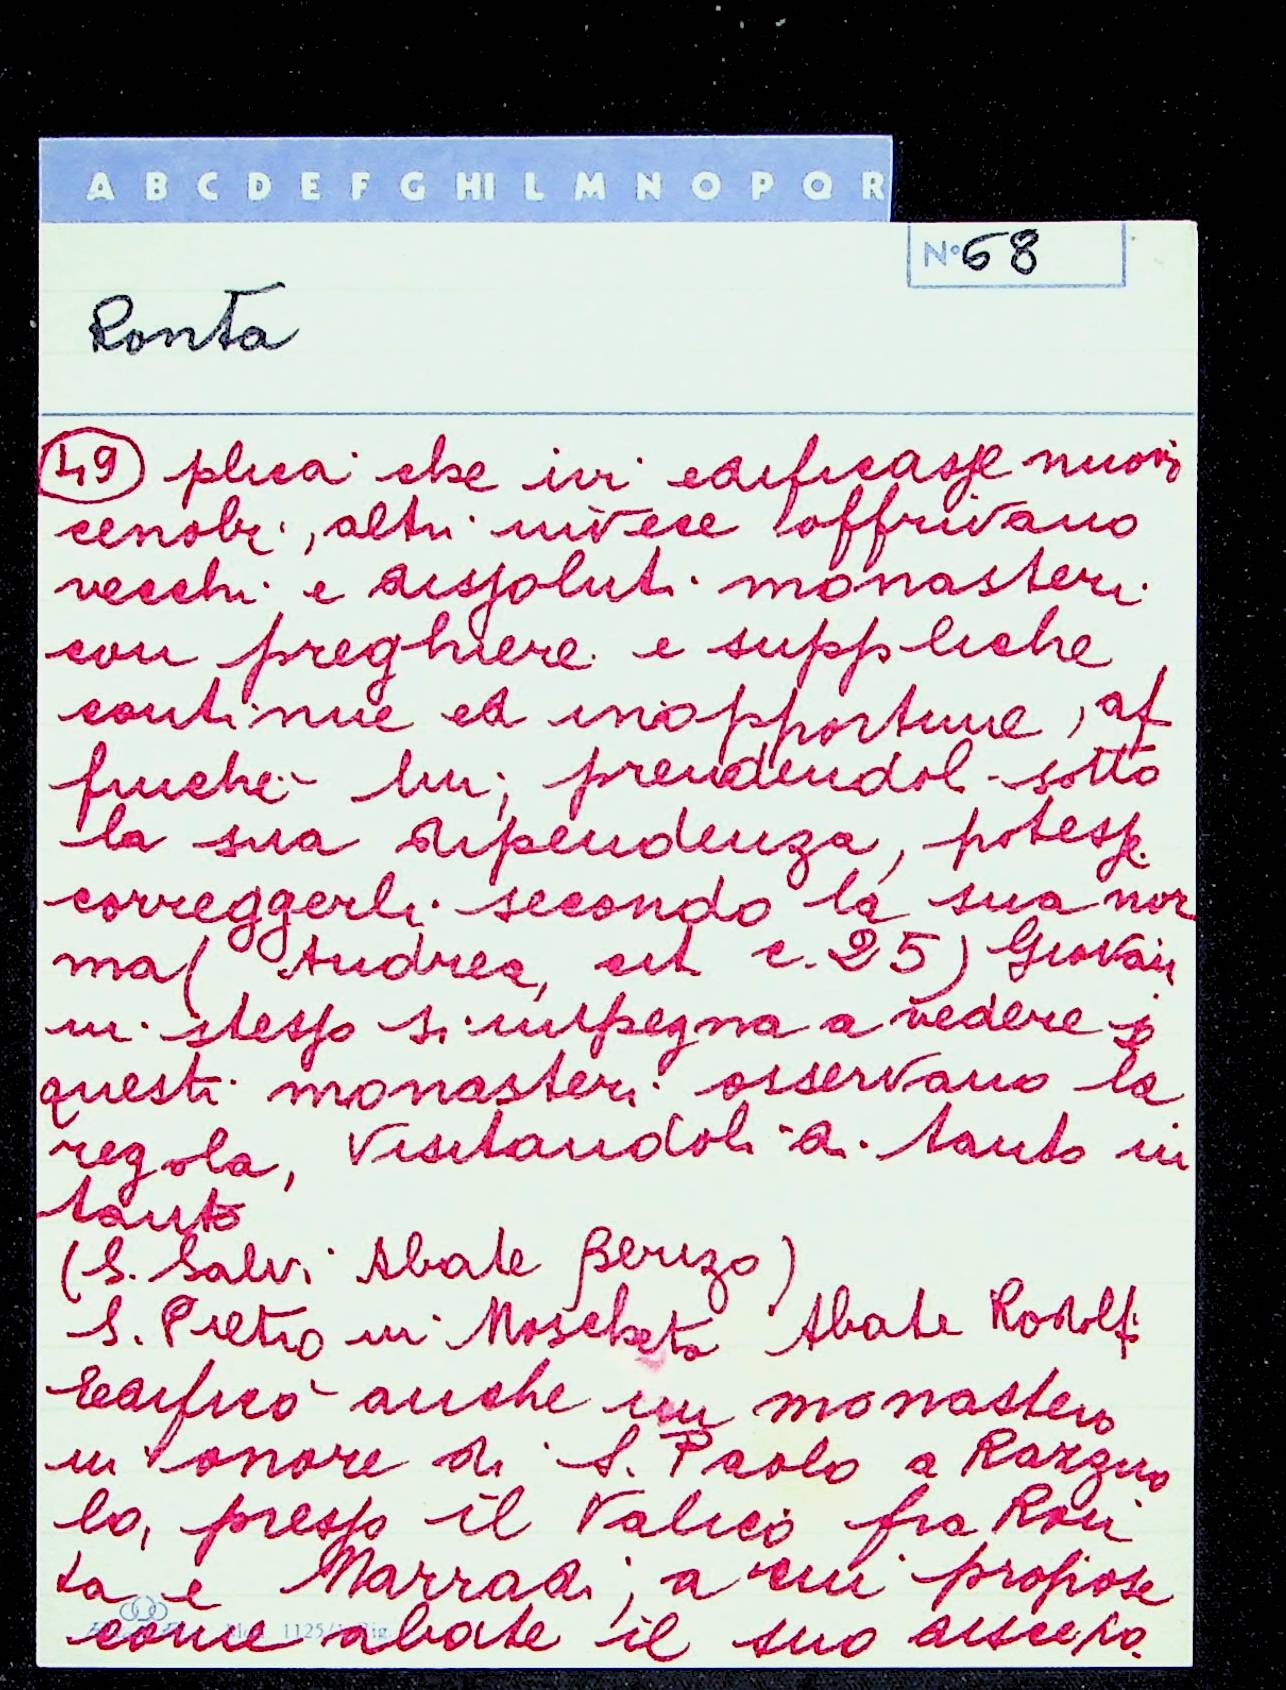 A B C D E F G HI L M N O P Q R
N° 68
Ronta
49 plica che ivi edificasse nuovi
cenobi, altri invece l'offrivano
vecchi e dissoluti monasteri
con preghiere e suppliche
continue ed inopportune, af
finché lui, prendendoli sotto
la sua dipendenza, potesse
correggerli secondo la sua nor
ma ( Andrea, cit c. 25) Giovan
ni stesso si impegna a vedere se
questi monasteri osservano la
regola, visitandoli di tanto in
tanto
(S. Salvi Abate Berizo)
S. Pietro in Moscheta Abate Rodolfo
Edificò anche un monastero
in onore di S. Paolo a Razzuo
lo, presso il Valico fra Ron
ta e Marradi, a cui propose
come abate il suo discepo.
1125/